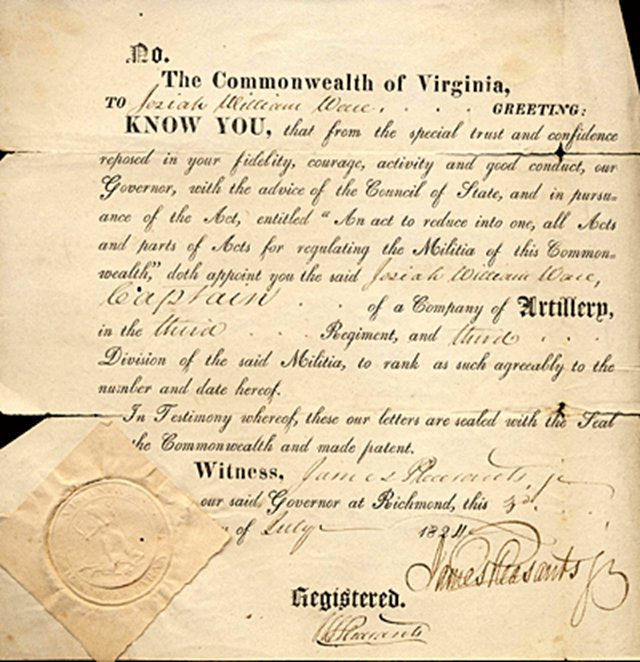 No.
The Commonwealth of Virginia,
TO Josiah William Ware, . . . GREETING:
KNOW YOU, that from the special trust and confidence
reposed in your fidelity, courage, activity and good conduct, our
Governor, with the advice of the Council of State, and in pursu-
ance of the Act, entitled "An act to reduce into one, all Acts
and parts of Acts for regulating the Militia of this Common-
wealth," doth appoint you the said Josiah William Ware,
Captain . . of a Company of Artillery,
in the third . . Regiment, and third . . .
Division of the said Militia, to rank as such agreeably to the
number and date hereof.
In Testimony whereof, these our letters are sealed with the Seal
the Commonwealth and made patent.
Witness, James Pleasants, jr
our said Governor at Richmond, this 3d.
of July 1824
James Pleasants Jr
Registered.
Pleasants